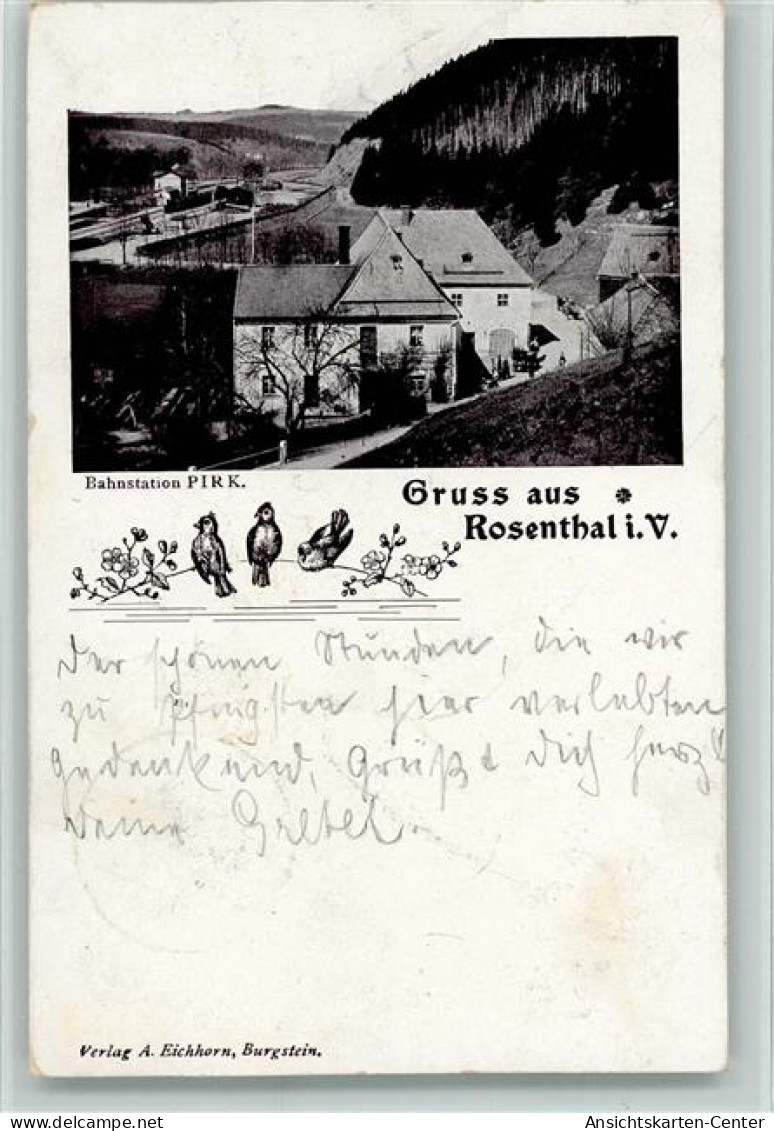 Bahnstation PIRK.
Gruss aus
Rosenthal i. V.
Der schönen Stunden, die wir
zu Pfingsten hier verlebten
gedenkend, Grüßt Dich herzl
Deine Gretel.
Verlag A. Eichhorn, Burgstein.
delcampe.net
Ansichtskarten-Center